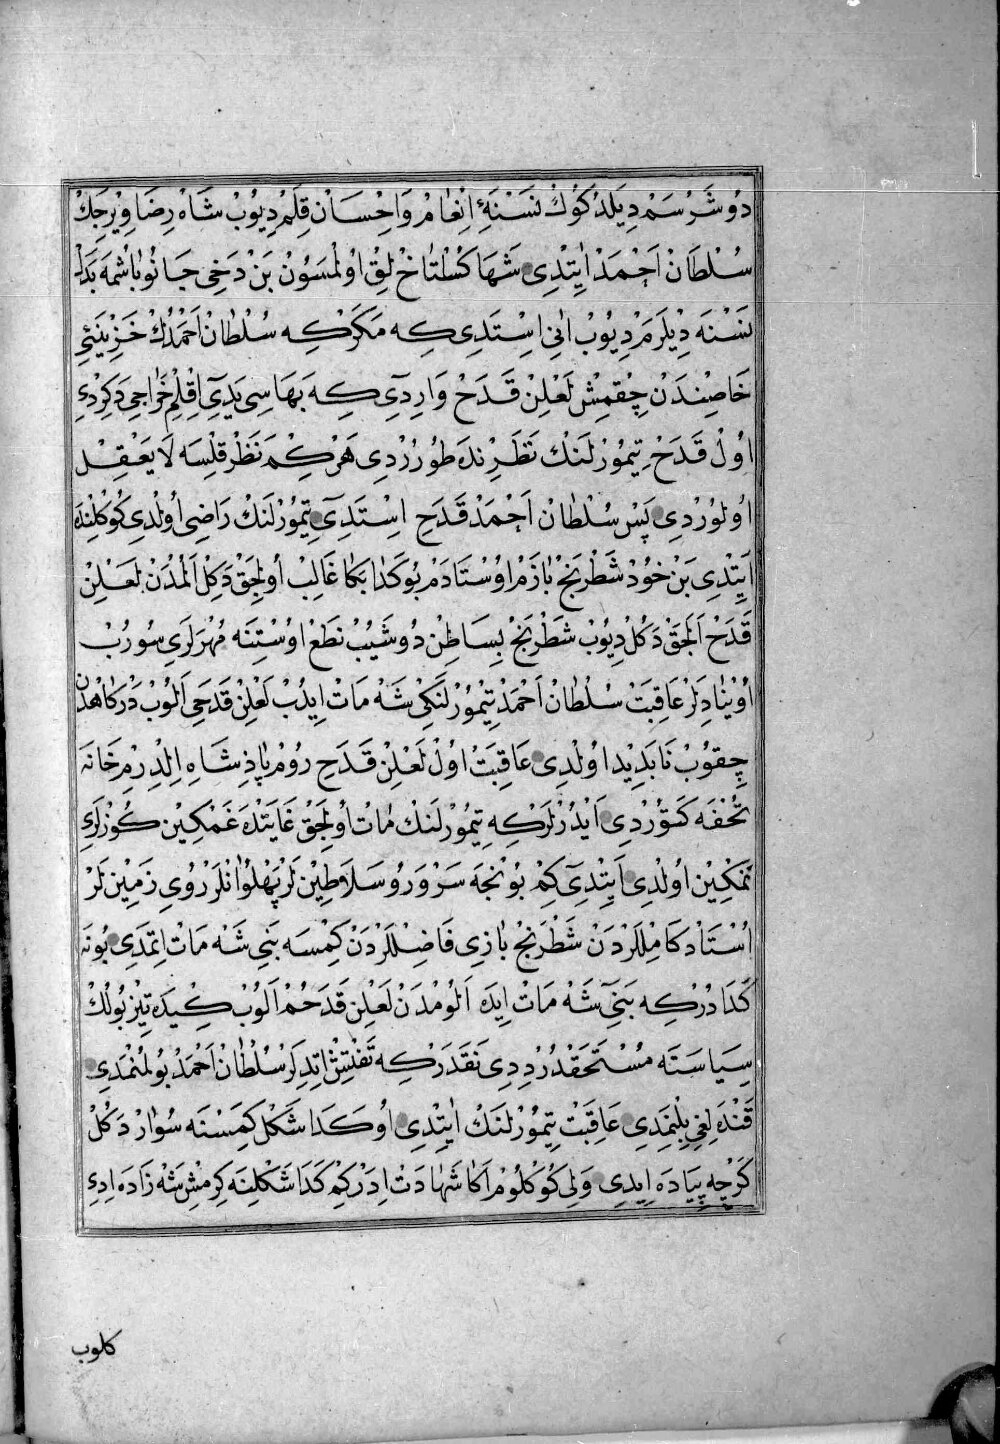 دُوشَرْسَمْ دِيلَدُكُوكْ نَسْنَهٔ اِنْعَامْ وَاِحْسَانْ قِلَمْ دِيُوبْ شَاهْ رِضَا وِيْرِجَكْ
سُلْطَانْ اَحْمَدْ اَيِتْدِى شَهَا كُسْتَاخْ لِقْ اُولْمَسُونْ بَنْ دَخِى جَانُو بَاشُمَه بَدَلْ
نَسْنَه دِيْلَرَمْ دِيُوبْ اَنِى اِسْتَدِى كِه مَكَرْكِه سُلْطَانْ اَحْمَدُكْ خَزِينَهٔ
خَاصِنْدَنْ چِقْمِشْ لَعْلِنْ قَدَحْ وَارِدِى كِه بَهَاسِى يَدِى اِقْلِمْ خَرَاجِى دَكَرْدِى
اُولْ قَدَحْ تِيمُورْلَنْكْ نَظَرِنْدَه طُورُرْدِى هَرْكِمْ نَظَرْ قِلْسَه لَا يَعْقِلْ
اُولُورْدِى پَسْ سُلْطَانْ اَحْمَدْ قَدَحِ اِسْتَدِى تِيمُورْلَنْكْ رَاضِى اُولْدِى كُوكُلِنْدَه
اَيِتْدِى بَنْ خُودْ شَطْرَنْجْ بَازَمْ اُوسْتَادَمْ بُو كَدَا بَكَا غَالِبْ اُولِجَقْ دَكِلْ اَلُمْدَنْ لَعْلِنْ
قَدَحْ اَلَجَقْ دَكُلْ دِيُوبْ شَطْرَنْجْ بِسَاطِنْ دُوشَيُبْ نَطَعْ اُوسْتِنَه مُهْرَلَرِى سُورُبْ
اُوْيْنَادِلَرْ عَاقِبَتْ سُلْطَانْ اَحْمَدْ تِيْمُورْلَنْكِى شَهْ مَاتْ اِيدُبْ لَعْلِنْ قَدَحِى اَلُوبْ دَرْكَاهْدَنْ
چِقُوبْ نَابَدِيدْ اُولْدِى عَاقِبَتْ اُولْ لَعْلِنْ قَدَحِ رُومْ پَاذِشَاهِ اِلْدِرِمْ خَانَه
تُحْفَه كَتُورْدِى اَيْدُرْلَرْكِه تِيمُورْلَنْكْ مَاتْ اُولِجَقْ غَايَتْدَه غَمْكِيْن كُوزْلَرِى
نَمْكِيْن اُولْدِى اَيِتْدِى كِمْ بُونْجَه سَرْوَرُو سَلَاطِيْن لَرْ پَهْلُوَانْلَرْ رُوىِ زَمِيْن لَرْ
اُسْتَادْ كَامِلْلَرْدَنْ شَطْرَنْجْ بَازِى فَاضِلْلَرْدَنْ كِمْسَه بَنِى شَهْ مَاتْ اِتمَدِى بُو نَه
كَدَا دُرْكِه بَنِى شَهْ مَاتْ اِيدَه اَلُومْدَنْ لَعْلِنْ قَدَحُمْ اَلُوبْ كِيدَه تِيْزْ بُولُكْ
سِيَاسَتَه مُسْتَحَقْدُرْ دِدِى نَقَدَرْكِه تَفْتِيْشْ اِتِدِلَرْ سُلْطَانْ اَحْمَدْ بُولُنْمَدِى
قَنْدَه لِغِى بِلِنْمَدِى عَاقِبَتْ تِيمُورْلَنْكْ اَيِتْدِى اُو كَدَا شَكْلْ كِمَسْنَه سُوَارْ دَكُلْ
كَرْچِه پِيَادَه اِيدِى وَلِى كُوكْلُومْ اَكَا شَهَادَتْ اِدَرْكِمْ كَدَا شَكْلِنَه كِرْمِشْ شَهْ زَادَه اِدِى
كلوب